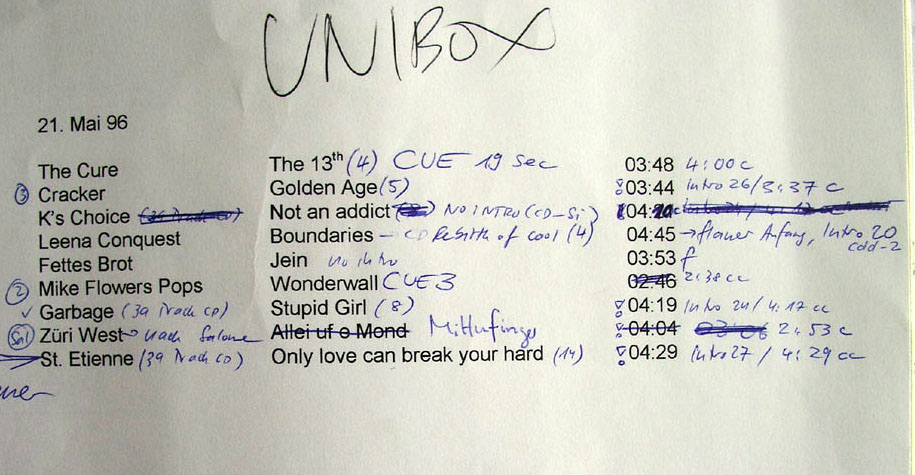 UNIBOX
21. Mai 96
The Cure The 13th (4) CUE 19 sec 03:48 4:00 c
③ Cracker Golden Age (5) 03:44 Intro 26/3:37 c
K's Choice Not an addict NO INTRO (CD-Si) 04:20
Leena Conquest Boundaries – CD Rebirth of cool (4) 04:45 → flauer Anfang, Intro 20
cdd-2
Fettes Brot Jein no intro 03:53 f
② Mike Flowers Pops Wonderwall CUE 3 02:46 2:38 cc
✓ Garbage (39 Track CD) Stupid Girl (8) 04:19 Intro 24/4:17 cc
Züri West nach Salome Allei uf e Mond Mittufinger 04:04 03:06 2:53 c
St. Etienne (39 Track CD) Only love can break your hard (14) 04:29 Intro 27 / 4:29 cc